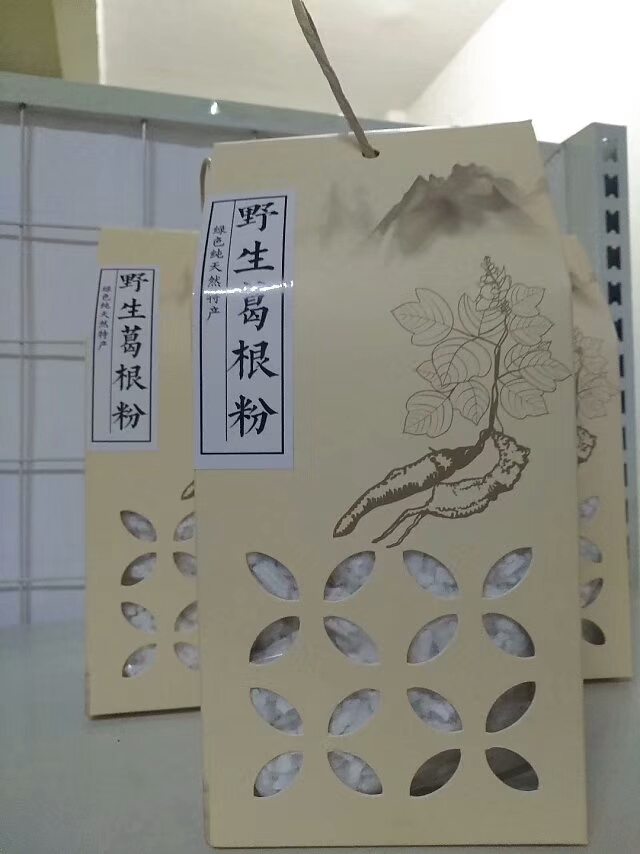 野生葛根粉
绿色纯天然特产
野生葛根粉
绿色纯天然特产